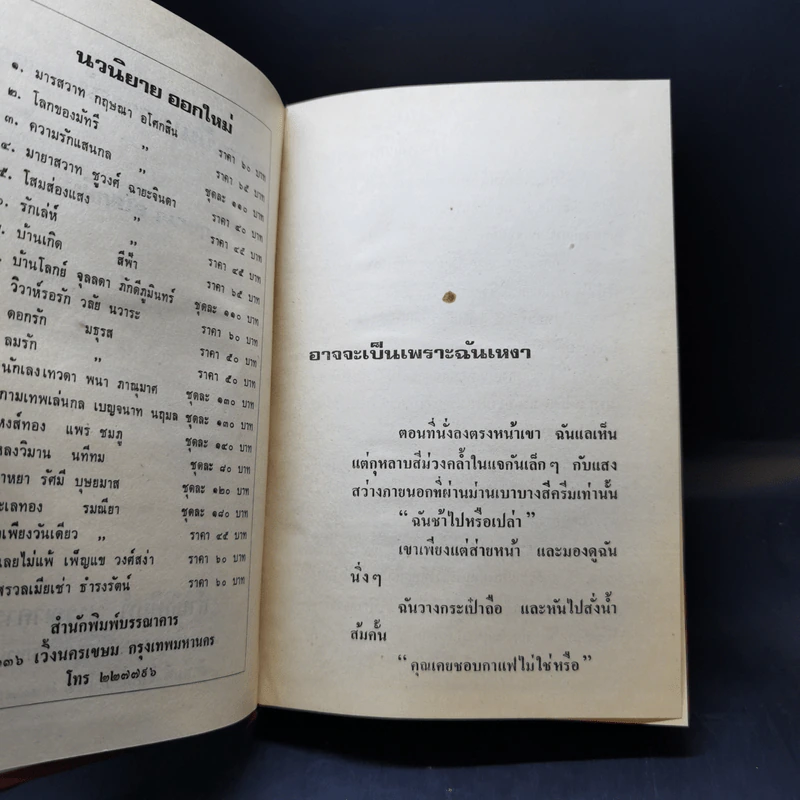 นวนิยาย ออกใหม่
๑. มารสวาท กฤษณา อโศกสิน ราคา ๖๐ บาท
๒. โลกของมัทรี " ราคา ๖๕ บาท
๓. ความรักแสนกล " ชุดละ ๑๑๐ บาท
๔. มายาสวาท ชูวงศ์ ฉายะจินดา ราคา ๔๐ บาท
๕. โสมส่องแสง " ราคา ๔๕ บาท
รักเล่ห์ " ราคา ๔๕ บาท
บ้านเกิด สีฟ้า ราคา ๖๕ บาท
บ้านโลกย์ จุลลดา ภักดีภูมินทร์ ชุดละ ๑๑๐ บาท
วิวาห์รอรัก วลัย นวาระ ราคา ๖๐ บาท
ดอกรัก มธุรส ราคา ๕๐ บาท
ลมรัก " ราคา ๕๐ บาท
นักเลงเทวดา พนา ภาณุมาศ ชุดละ ๑๓๐ บาท
กามเทพเล่นกล เบญจนาท นฤมล ชุดละ ๑๓๐ บาท
หงส์ทอง แพร ชมภู ชุดละ ๑๔๐ บาท
หลงวิมาน นทีทม ชุดละ ๘๐ บาท
รัศมี บุษยมาส ชุดละ ๑๒๐ บาท
ทะเลทอง รมณียา ชุดละ ๑๘๐ บาท
เพียงวันเดียว " ราคา ๔๕ บาท
เลยไม่แพ้ เพ็ญแข วงศ์สง่า ราคา ๖๐ บาท
สรวลเมียเช่า ธำรงรัตน์ ราคา ๖๐ บาท
สำนักพิมพ์บรรณาคาร
๓๓๖ เวิ้งนครเขษม กรุงเทพมหานคร
โทร ๒๒๗๗๙๖
อาจจะเป็นเพราะฉันเหงา
ตอนที่นั่งลงตรงหน้าเขา ฉันแลเห็น
แต่กุหลาบสีม่วงคล้ำในแจกันเล็กๆ กับแสง
สว่างภายนอกที่ผ่านม่านเบาบางสีครีมเท่านั้น
“ฉันช้าไปหรือเปล่า”
เขาเพียงแต่ส่ายหน้า และมองดูฉัน
นิ่งๆ
ฉันวางกระเป๋าถือ และหันไปสั่งน้ำ
ส้มคั้น
“คุณเคยชอบกาแฟไม่ใช่หรือ”